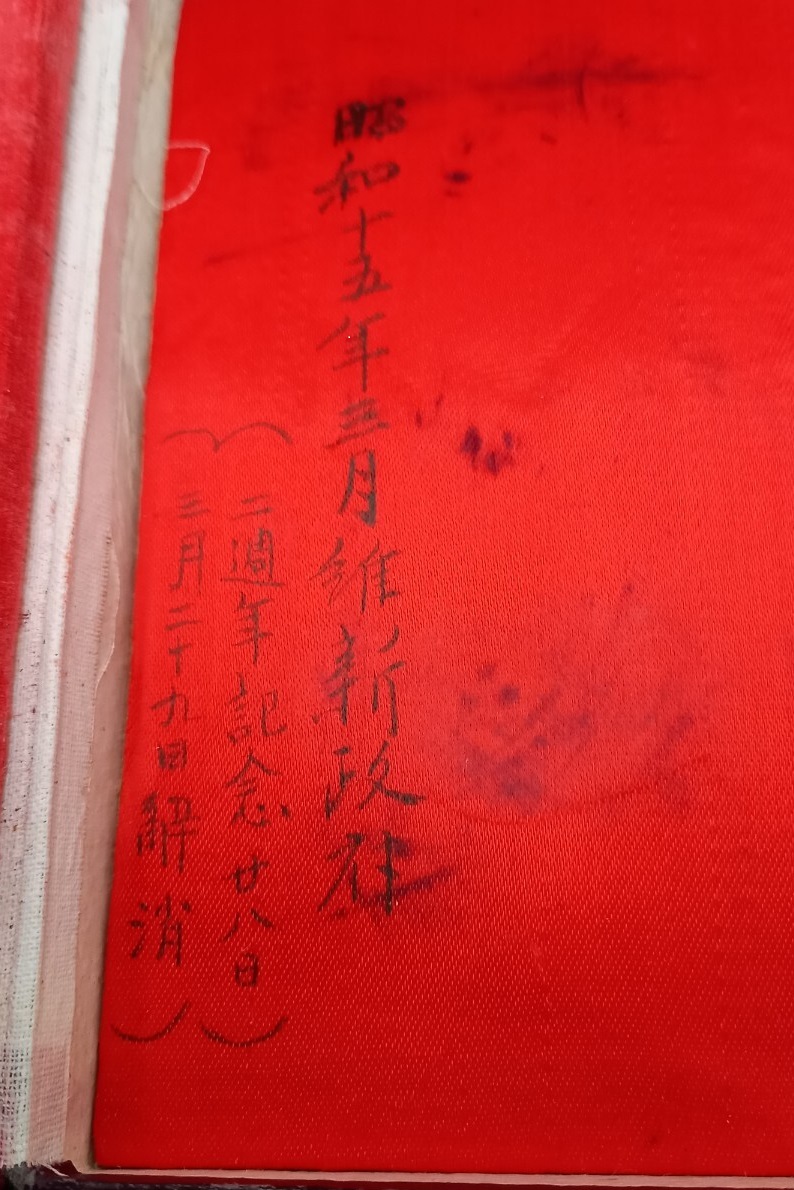 昭和十五年三月維新政府
(二週年記念廿八日)
(三月二十九日解消)